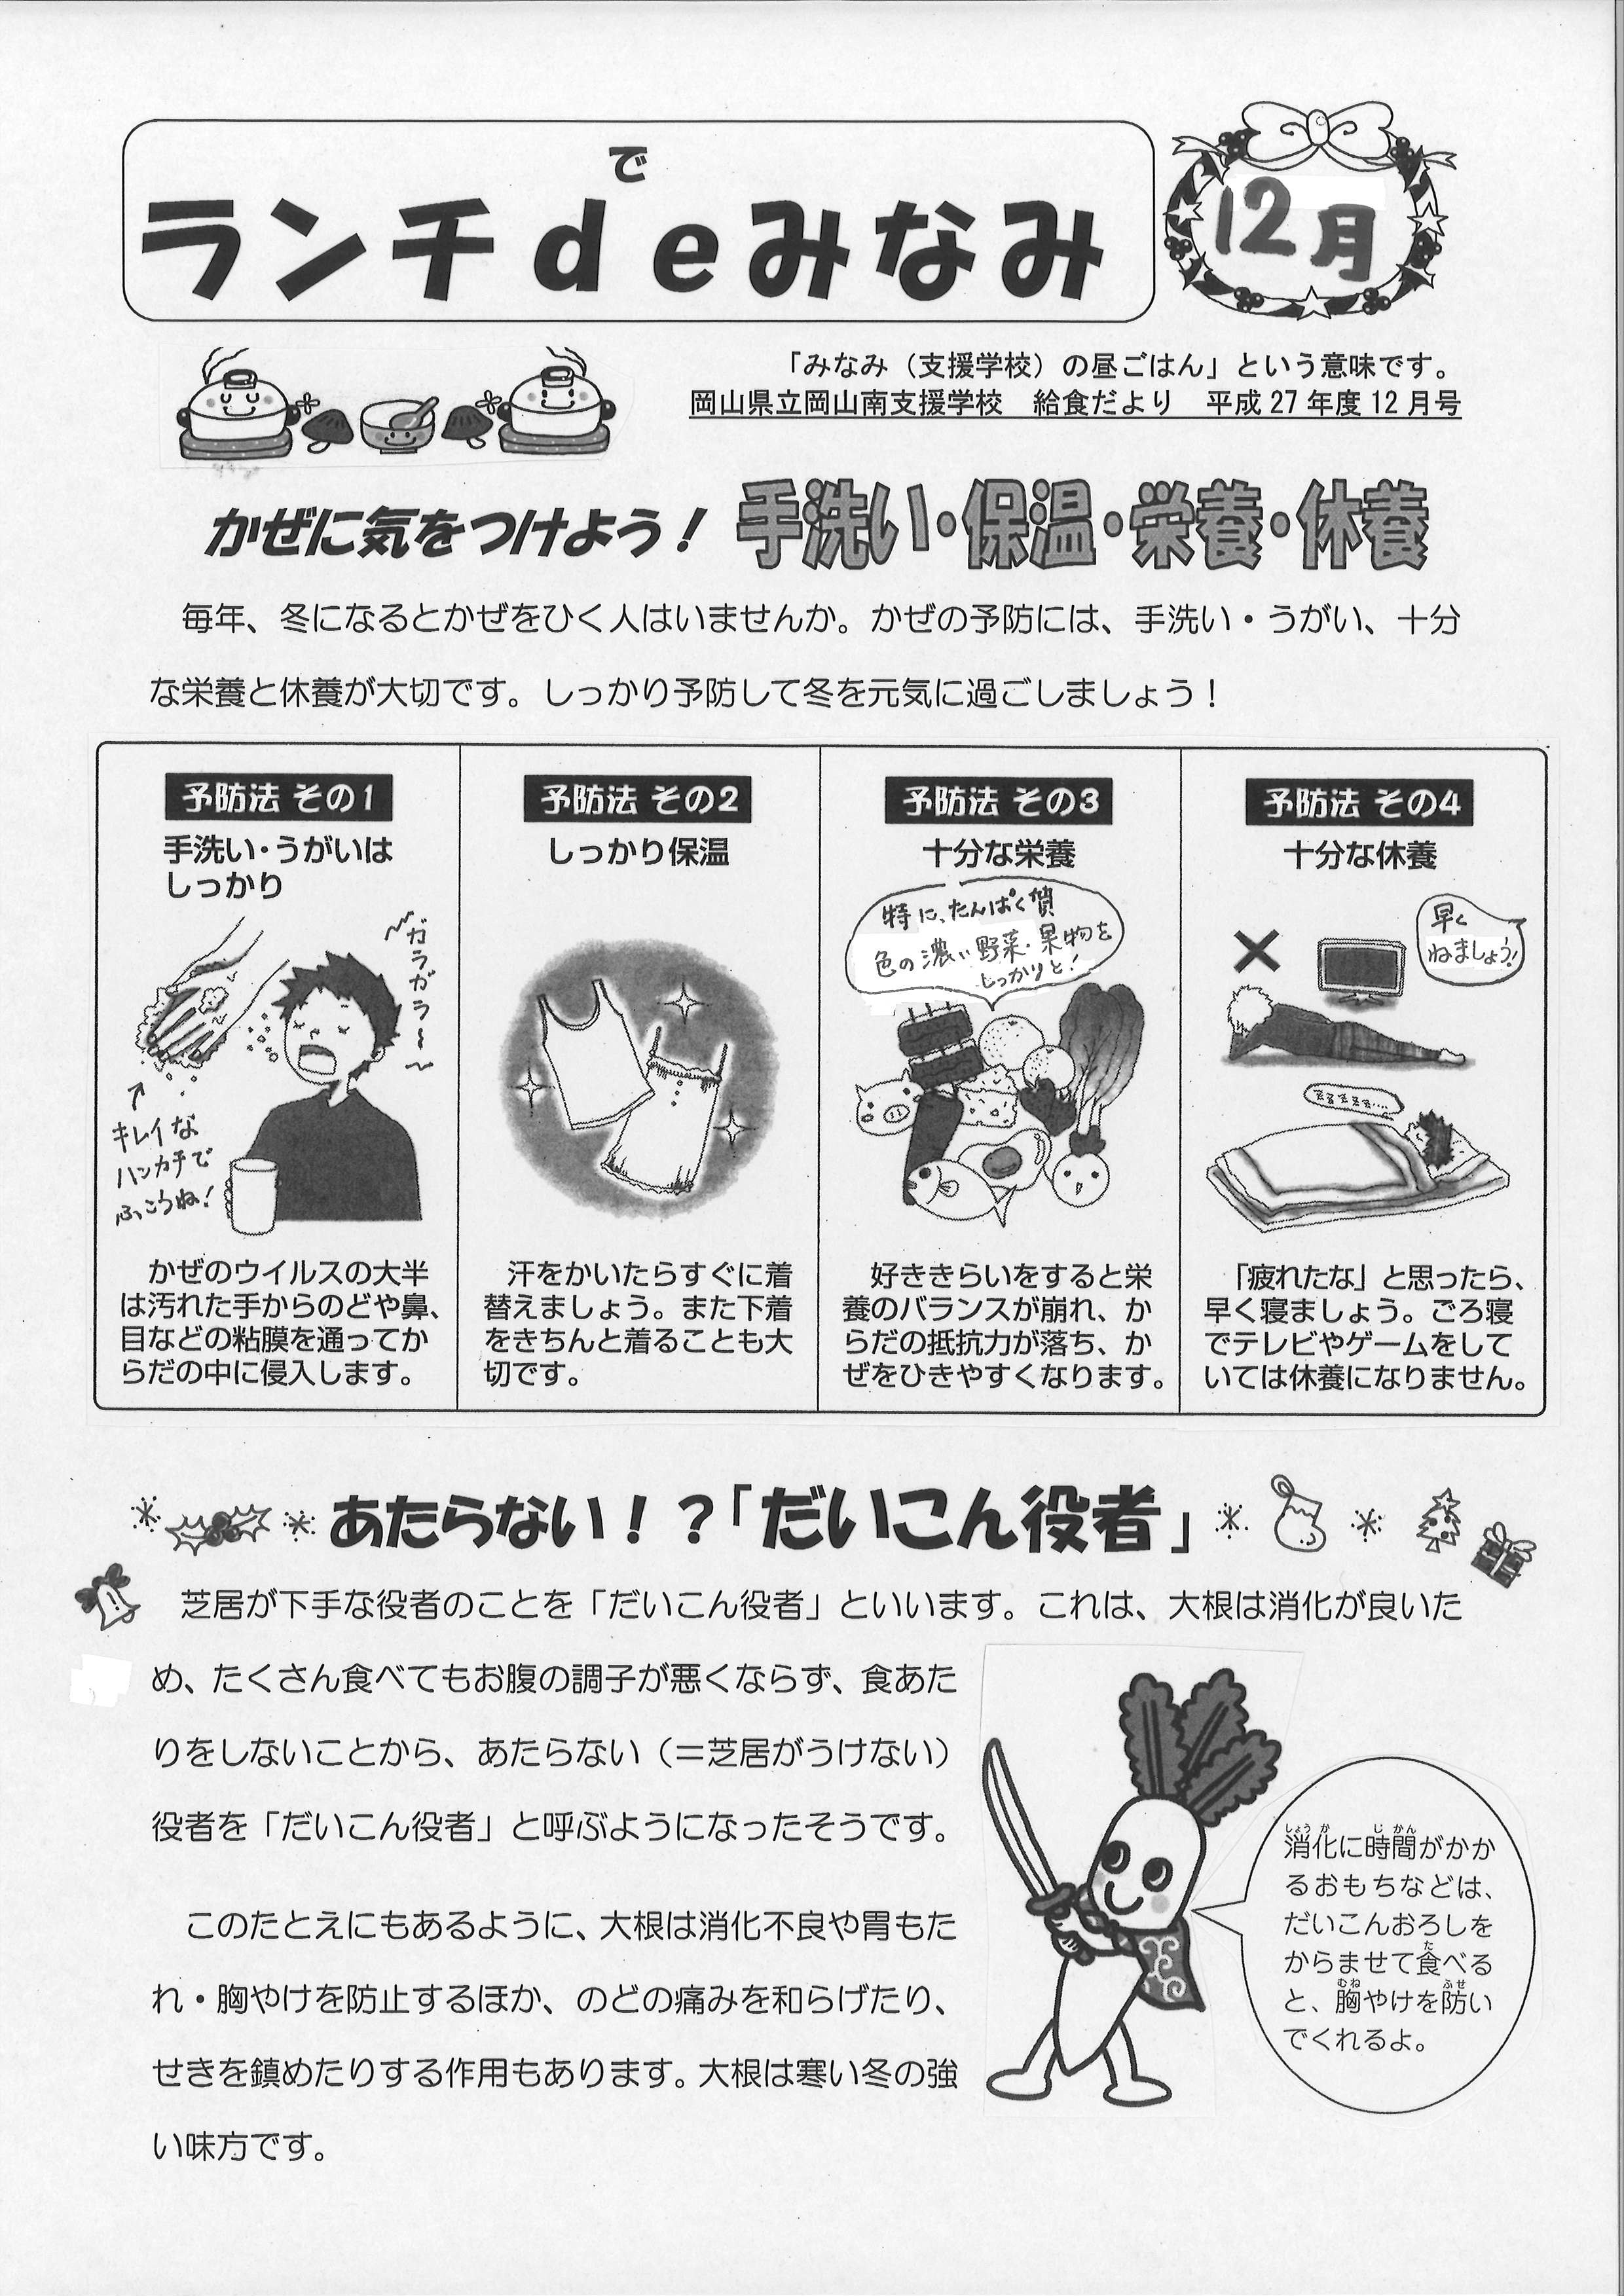 で
ランチdeみなみ
12月
「みなみ（支援学校）の昼ごはん」という意味です。
岡山県立岡山南支援学校　給食だより　平成27年度12月号
かぜに気をつけよう！ 手洗い・保温・栄養・休養
毎年、冬になるとかぜをひく人はいませんか。かぜの予防には、手洗い・うがい、十分
な栄養と休養が大切です。しっかり予防して冬を元気に過ごしましょう！
予防法 その1
手洗い・うがいは
しっかり
ガラガラ～
キレイな
ハンカチで
ふこうね！
かぜのウイルスの大半
は汚れた手からのどや鼻、
目などの粘膜を通ってか
らだの中に侵入します。
予防法 その2
しっかり保温
汗をかいたらすぐに着
替えましょう。また下着
をきちんと着ることも大
切です。
予防法 その3
十分な栄養
特に、たんぱく質
色の濃い野菜・果物を
しっかりと！
好ききらいをすると栄
養のバランスが崩れ、か
らだの抵抗力が落ち、か
ぜをひきやすくなります。
予防法 その4
十分な休養
早く
ねましょう！
「疲れたな」と思ったら、
早く寝ましょう。ごろ寝
でテレビやゲームをして
いては休養になりません。
あたらない！？「だいこん役者」
芝居が下手な役者のことを「だいこん役者」といいます。これは、大根は消化が良いた
め、たくさん食べてもお腹の調子が悪くならず、食あた
りをしないことから、あたらない（＝芝居がうけない）
役者を「だいこん役者」と呼ぶようになったそうです。
このたとえにもあるように、大根は消化不良や胃もた
れ・胸やけを防止するほか、のどの痛みを和らげたり、
せきを鎮めたりする作用もあります。大根は寒い冬の強
い味方です。
しょうか　じかん
消化に時間がかか
るおもちなどは、
だいこんおろしを
た
からませて食べる
むね　ふせ
と、胸やけを防い
でくれるよ。